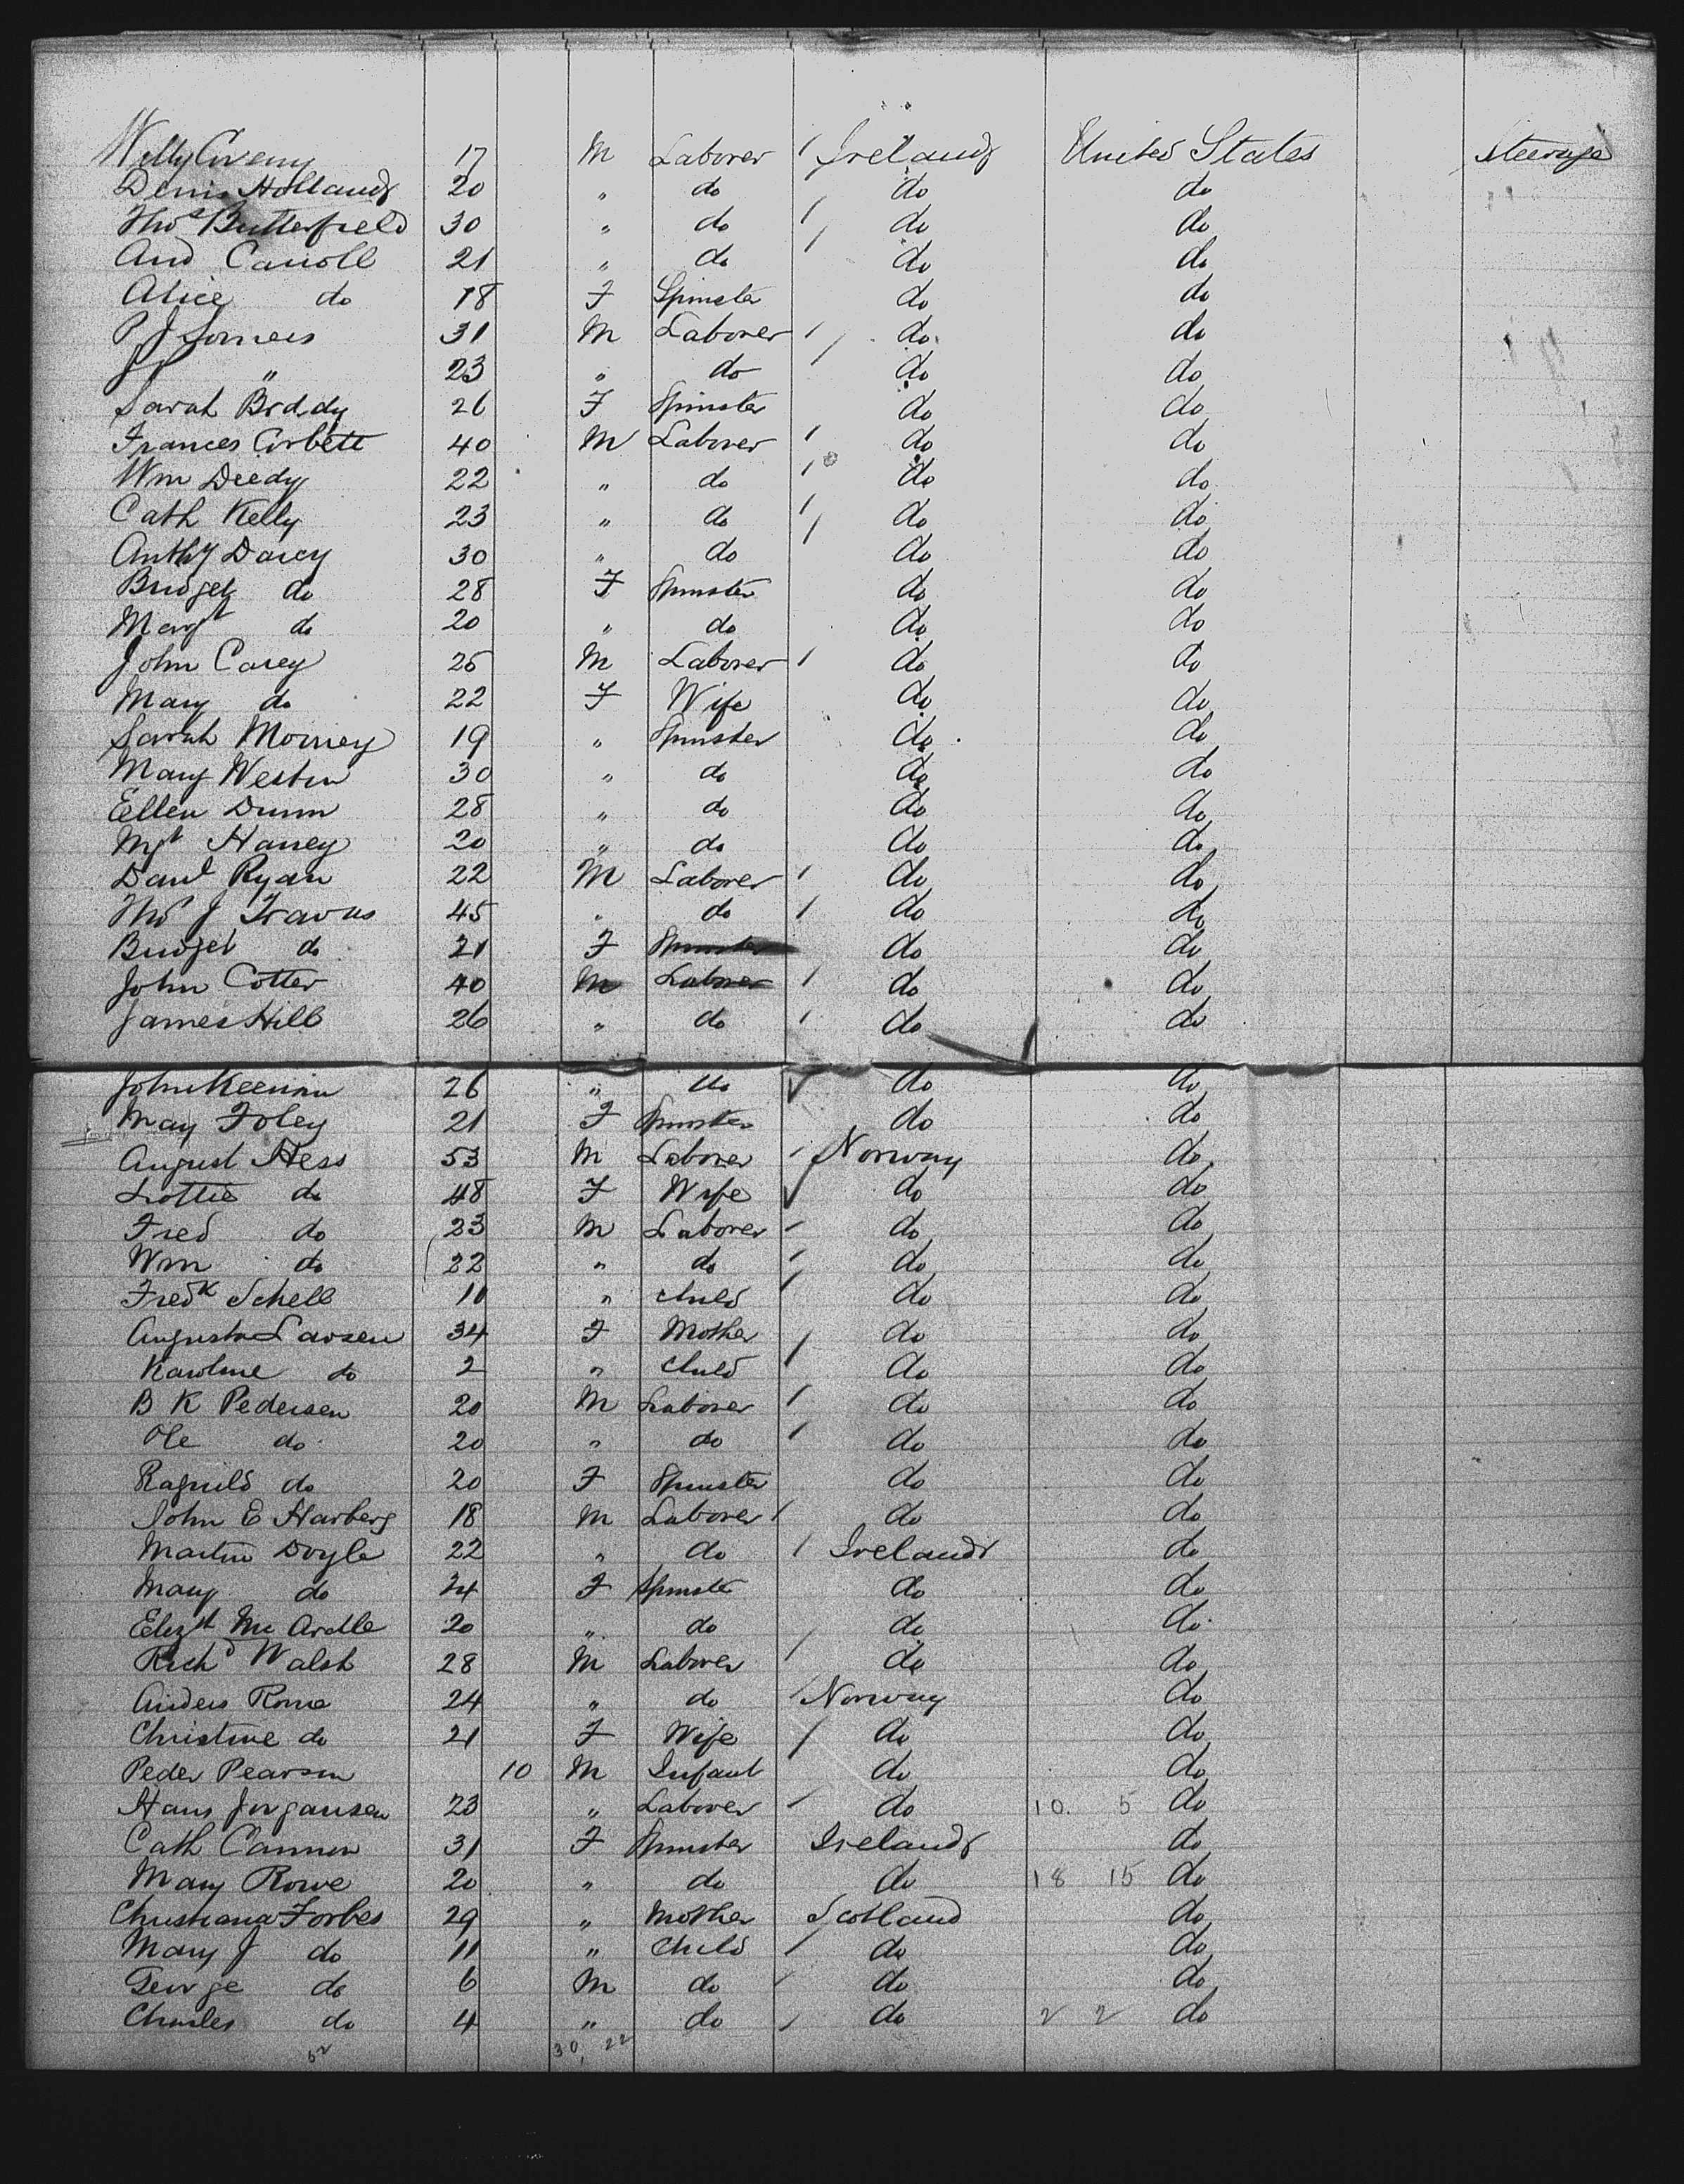 Willy Coveny 17 M Laborer Ireland United States Steerage
Denis Holland 20 " do do do
Thos Butterfield 30 " do do do
And Carroll 21 " do do do
Alice do 18 F Spinster do do
P J Somers 31 M Laborer do do
" 23 " do do do
Sarah Boddy 26 F Spinster do do
Frances Corbett 40 M Laborer do do
Wm Deedy 22 " do do do
Cath Kelly 23 " do do do
Anthy Darcy 30 " do do do
Bridget do 28 F Spinster do do
Margt do 20 " do do do
John Carey 25 M Laborer do do
Mary do 22 F Wife do do
Sarah 19 " Spinster do do
Mary Weston 30 " do do do
Ellen Dunn 28 " do do do
Mgt Harvey 20 " do do do
Danl Ryan 22 M Laborer do do
Thos J Travers 45 " do do do
Bridget do 21 F Spinster do do
John Cotter 40 M Laborer do do
James Hill 26 " do do do
John Keenan 26 " do do do
May Foley 21 F Spinster do do
August Hess 53 M Laborer Norway do
Lottie do 48 F Wife do do
Fred do 23 M Laborer do do
Wm do 22 " do do do
Fredk Schell 10 " Child do do
Augusta Larsen 34 F Mother do do
Karoline do 2 " Child do do
B K Pedersen 20 M Laborer do do
Ole do 20 " do do do
Ragnild do 20 F Spinster do do
John E Harberg 18 M Laborer do do
Martin Doyle 22 " do Ireland do
Mary do 24 F Spinster do do
Elizt Mc Ardle 20 " do do do
Richd Walsh 28 M Laborer do do
Anders Rome 24 " do Norway do
Christine do 21 F Wife do do
Peder Pearson 10 M Infant do do
Hans Jorgansen 23 " Laborer do 10. 5 do
Cath Cannon 31 F Spinster Ireland do
Mary Rowe 20 " do do 18 15 do
Christiana Forbes 29 " Mother Scotland do
Mary J do 11 " Child do do
George do 6 M do do do
Charles do 4 " do do 2 2 do
52 30, 22